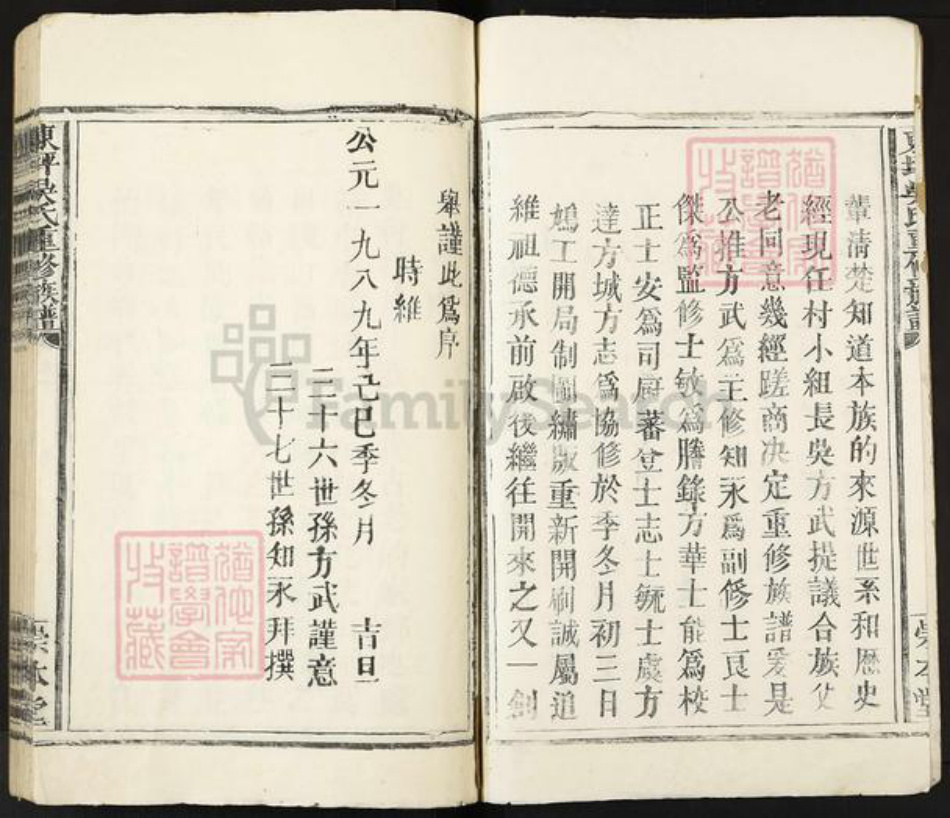 輩清楚知道本族的來源世系和歷史
經現任村小組長吳方武提議合族父
老同意幾經蹉商决定重修族譜爰是
公推方武爲主修知永爲副修士良士
傑爲監修士敏爲謄錄方華士能爲校
正士安爲司厨蕃登士志士毓士處方
達方城方志爲協修於季冬月初三日
鳩工開局制圖繡版重新開刷誠屬道
維祖德承前啟後繼往開來之又一創
舉謹此爲序
時維
公元一九八九年己巳季冬月 吉日
三十六世孫方武謹意
三十七世孫知永拜撰
東坪吳氏重修族譜
崇本堂
譜學會
收藏
FamilySearch